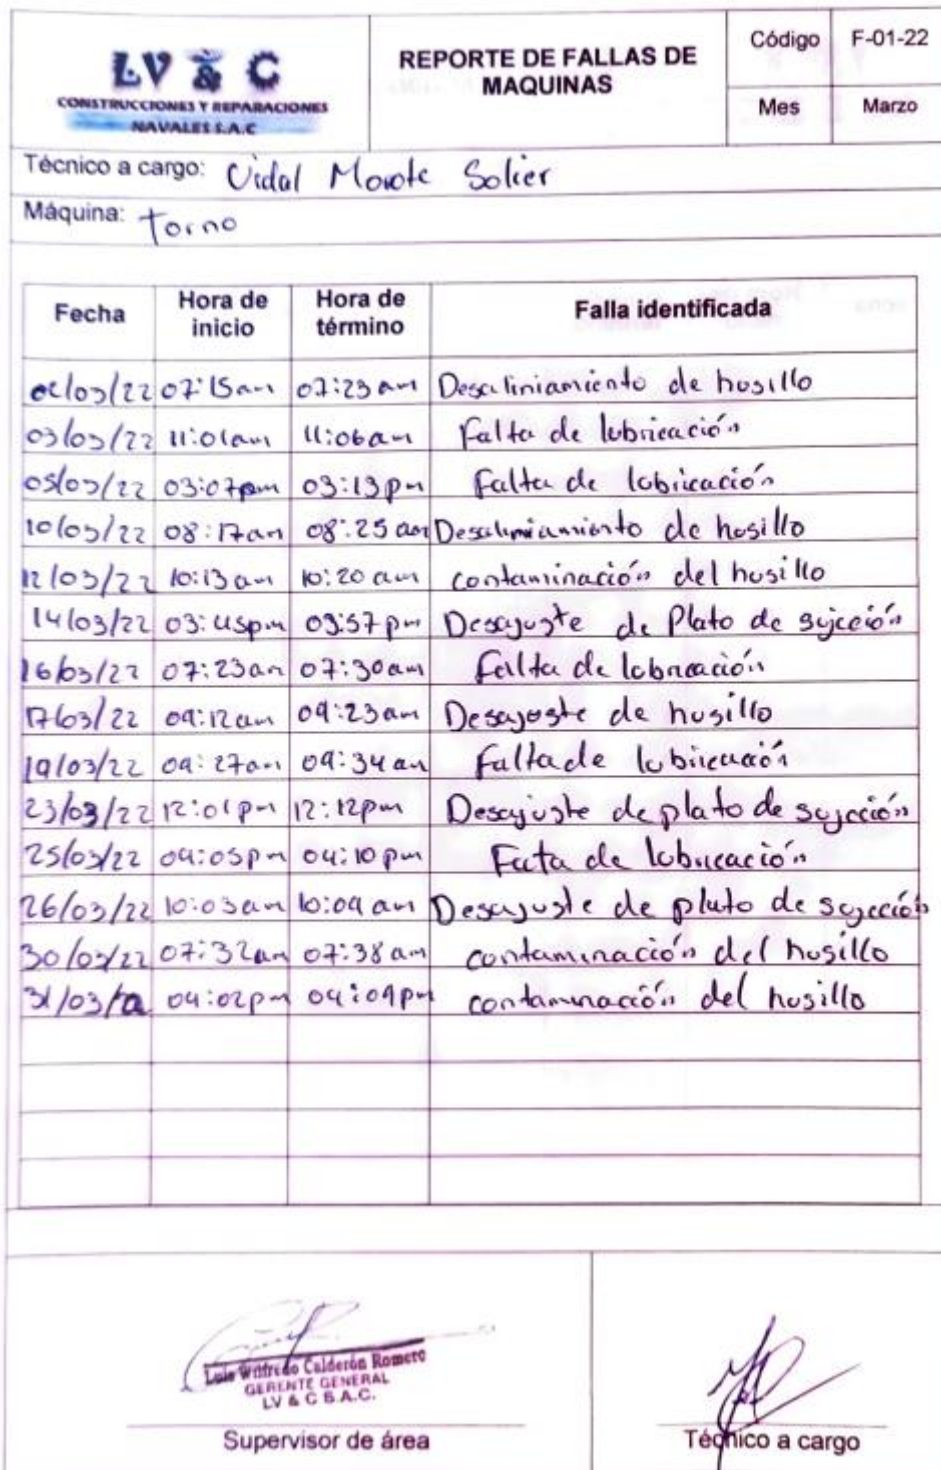 LV & C
CONSTRUCCIONES Y REPARACIONES
NAVALES S.A.C
REPORTE DE FALLAS DE
MAQUINAS
Código F-01-22
Mes Marzo
Técnico a cargo: Vidal Morote Solier
Máquina: Torno
Fecha Hora de inicio Hora de término Falla identificada
02/03/22 07:15am 07:23am Desaliniamiento de husillo
03/03/22 11:01am 11:06am Falta de lubricación
05/03/22 03:07pm 03:13pm Falta de lubricación
10/03/22 08:17am 08:25am Desaliniamiento de husillo
12/03/22 10:13am 10:20am contaminación del husillo
14/03/22 03:45pm 03:57pm Desajuste de Plato de sujeción
16/03/22 07:23am 07:30am Falta de lubricación
17/03/22 09:12am 09:23am Desajuste de husillo
19/03/22 09:27am 09:34am Falta de lubricación
23/03/22 12:01pm 12:12pm Desajuste de plato de sujección
25/03/22 04:05pm 04:10pm Fata de lubricación
26/03/22 10:03am 10:09am Desajuste de plato de sujección
30/03/22 07:32am 07:38am contaminación del husillo
31/03/22 04:02pm 04:09pm contaminación del husillo
Luis Wilfredo Calderón Romero
GERENTE GENERAL
LV & C S.A.C.
Supervisor de área
Técnico a cargo